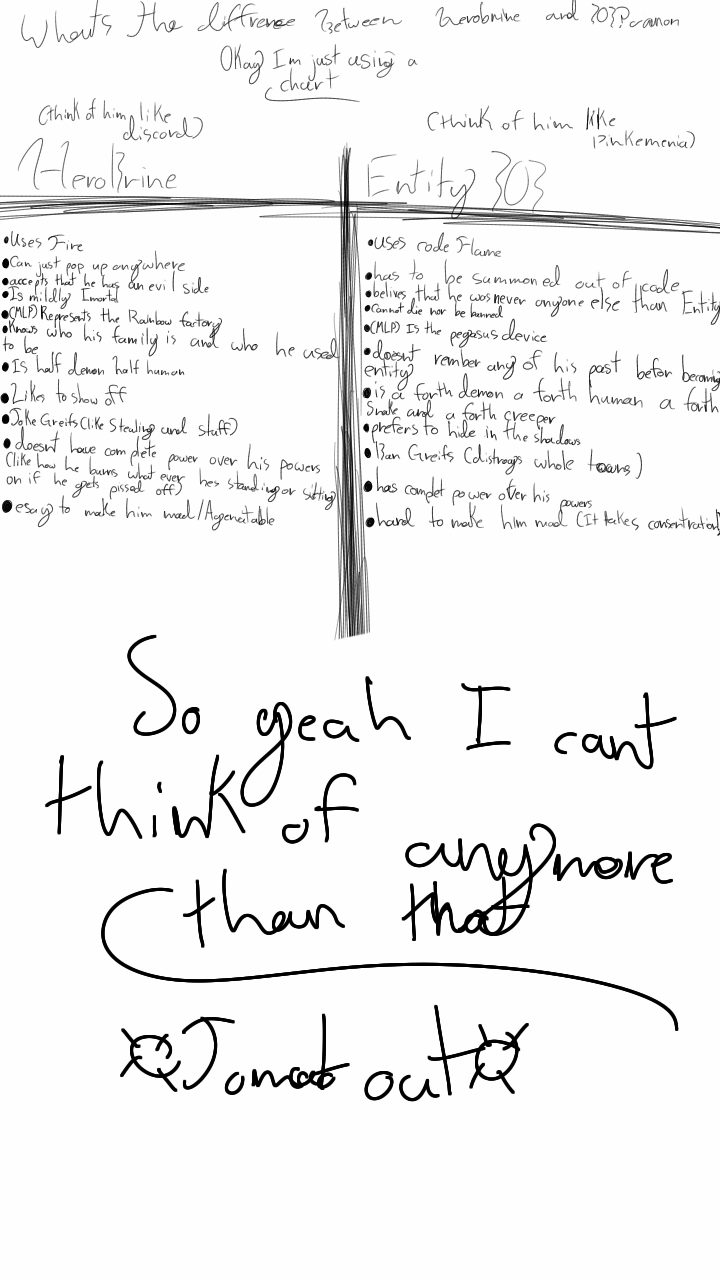 Whats the diffrence Between Herobrine and 303?
Okay I'm just using a
chart
(think of him like
discord)
HeroBrine
•Uses Fire
•Can just pop up anywhere
•accepts that he has an evil side
•Is mildly Imortal
•(MLP) Represents the Rainbow factory
•Knows who his family is and who he used
to be
•Is half demon half human
•Likes to show off
•Joke Greifs (like Stealing and stuff)
•doesnt have complete power over his powers
(like how he burns what ever hes standing or sitting
on if he gets pissed off)
•esay to make him mad/Agenatable
(think of him like
Pinkemenia)
Entity 303
•uses code Flame
•has to be summoned out of code
•belives that he was never anyone else than Entity
•Cannot die nor be banned
•(MLP) Is the pegasus device
•doesnt rember any of his past befor becoming
entity
•is a forth demon a forth human a forth
Snake and a forth creeper
•prefers to hide in the shadows
•Ban Greifs (distroys whole towns)
•has complet power over his powers
•hard to make him mad (It takes consentration)
So yeah I cant
think of
anymore
than that
Jomat out